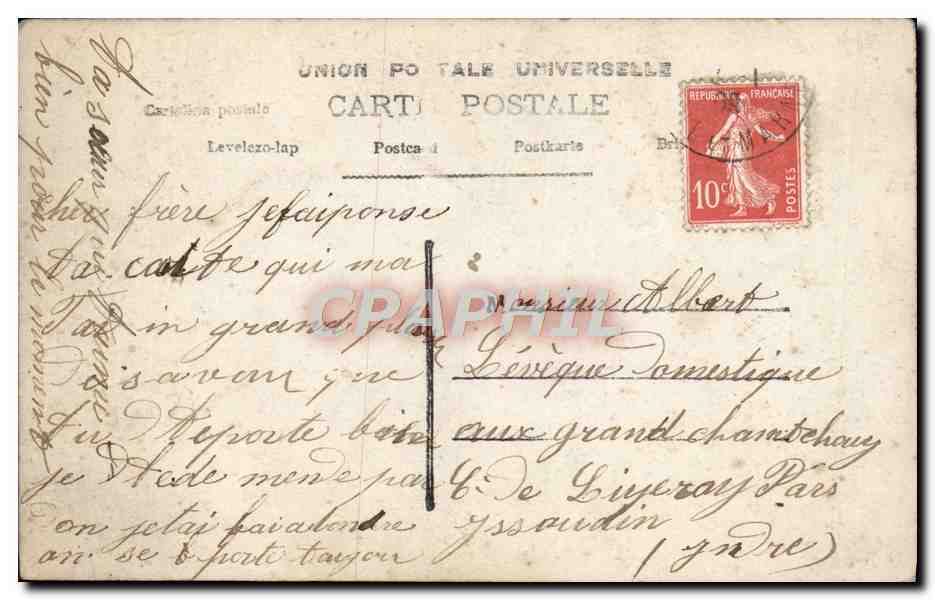 UNION PO TALE UNIVERSELLE
CART POSTALE
Cartolina postale
Levelezo-lap Postca d Postkarte
REPUBLIQUE FRANÇAISE
10c
POSTES
CPAPHIL
cher frère je fai ponse
ta carte qui ma
fai in grand plai
di savoir que
tu te porte bien
je te de mende par
on je tai fai atendre
on se porte toujou
bien pour le moment
Ta soeur qui
Monsieur Albert
Lévêque Domestique
aux grand chamtchouy
C. De Lizeray Pars
Yssoudin
(yndre)